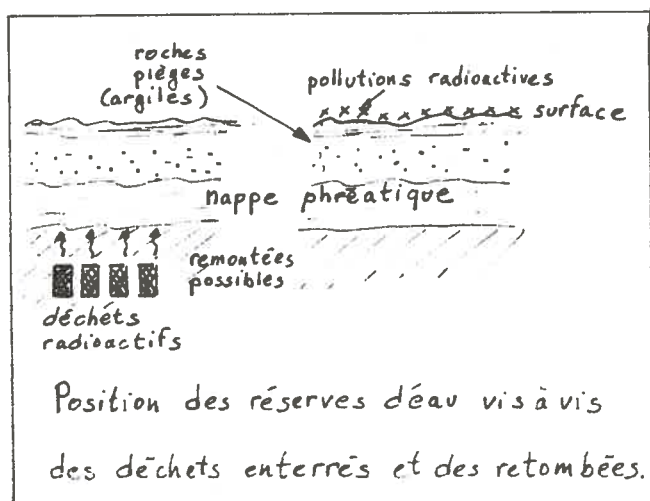 roches
pièges
(argiles)
pollutions radioactives
surface
nappe phréatique
remontées
possibles
déchéts
radioactifs
Position des réserves d'éau vis à vis
des déchets enterrés et des retombées.